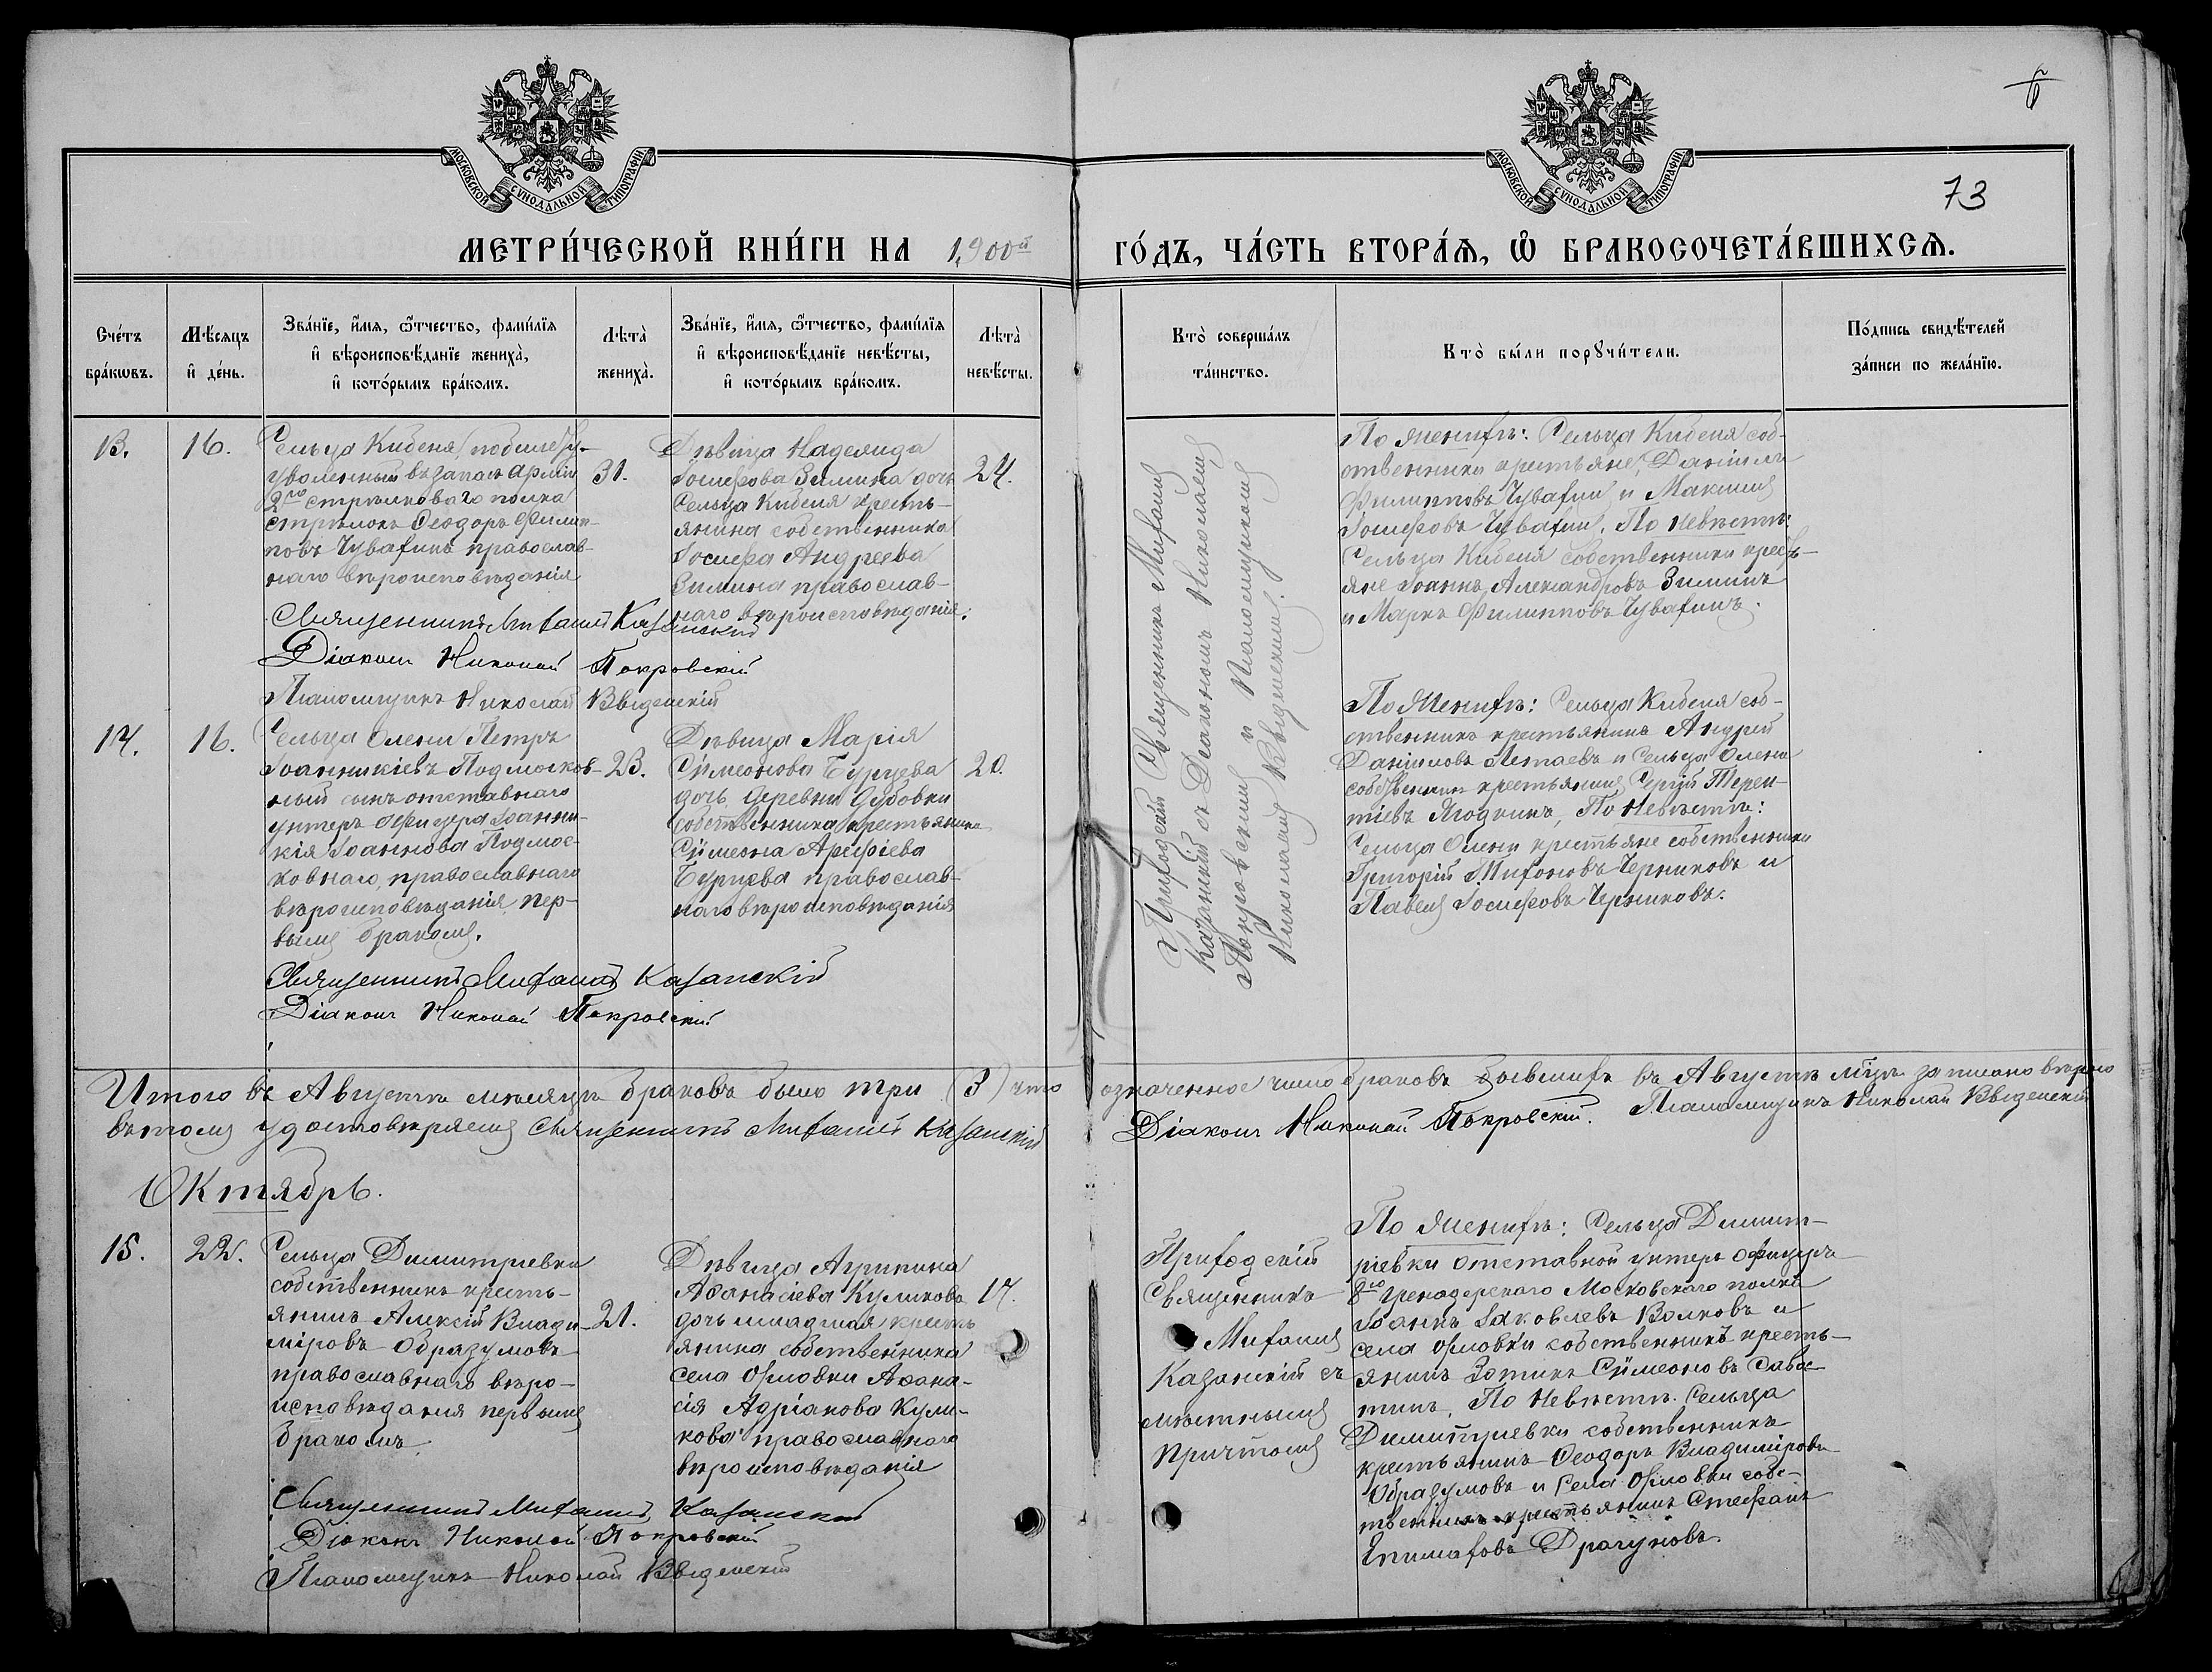 73
МОСКОВСКОЙ СѴНОДАЛЬНОЙ ТИПОГРАФІИ.
МОСКОВСКОЙ СѴНОДАЛЬНОЙ ТИПОГРАФІИ.
МЕТРИ́ЧЕСКОЙ КНИ́ГИ НА 1900й ГО́ДЪ, ЧА́СТЬ ВТОРА́Ѧ, Ѽ БРАКОСОЧЕТА́ВШИХСѦ.
Сче́тъ
бра́кѡвъ.
Мѣ́сяцъ
и҆ де́нь.
Зва́нїе, и҆́мѧ, ѻ҆́тчество, фами́лїѧ
и҆ вѣроисповѣ́данїе жениха̀,
и҆ кото́рымъ бра́комъ.
Лѣта̀
жениха̀.
Зва́нїе, и҆́мѧ, ѻ҆́тчество, фами́лїѧ
и҆ вѣроисповѣ́данїе невѣ́сты,
и҆ кото́рымъ бра́комъ.
Лѣта̀
невѣ́сты.
Кто̀ соверша́лъ
та́инство.
Кто̀ бы́ли порꙋчи́тели.
По́дпись свидѣ́телей
за́писи по жела́нїю.
13.
16.
Сельца Кибеня
уволенный въ запасъ арміи
2го стрѣлковаго полка
стрѣлокъ Ѳеодоръ Филип-
повъ Чувахинъ православ-
наго вѣроисповѣданія
31.
Дѣвица Надежда
Іосифова Зимина дочь
Сельца Кибеня кресть-
янина собственника
Іосифа Андреева
Зимина православ-
наго вѣроисповѣданія.
24.
По женихѣ: Сельца Кибеня соб-
ственники крестьяне, Даніилъ
Филипповъ Чувахинъ и Максимъ
Іосифовъ Чувахинъ. По невѣстѣ:
Сельца Кибеня собственники кресть-
яне Іоаннъ Александровъ Зиминъ
и Маркъ Филипповъ Чувахинъ.
Священникъ Митрофанъ Казанскій
Діаконъ Николай Покровскій
Псаломщикъ Николай Введенскій
14.
16.
Сельца Олени Петръ
Іоанникіевъ Подмосков-
ный сынъ отставнаго
унтеръ офицера Іоанни-
кія Іоаннова Подмос-
ковнаго, православнаго
вѣроисповѣданія, пер-
вымъ бракомъ.
23.
Дѣвица Марія
Сѵмеонова Бурцева
дочь деревни Дубовки
собственника крестьянина
Сѵмеона Арефіева
Бурцева православ-
наго вѣроисповѣданія
20.
Приходскій Священникъ
Казанскій съ Діакономъ Николаемъ
Покровскимъ и Псаломщикомъ
Николаемъ Введенскимъ.
По женихѣ: Сельца Кибеня соб-
ственникъ крестьянинъ Андрей
Даніиловъ и Сельца Олени
собственникъ крестьянинъ Сергій Терен-
тіевъ Ягодкинъ, По невѣстѣ:
Сельца Олени крестьяне собственники
Григорій Черниковъ и
Павелъ Іосифовъ Черниковъ.
Священникъ Казанскій
Діаконъ Николай Покровскій
Итого въ Августѣ мѣсяцѣ браковъ было три (3) что означенное число браковъ бывшихъ въ Августѣ записано вѣрно
въ томъ удостовѣряемъ Священникъ Казанскій Діаконъ Николай Покровскій. Псаломщикъ Николай Введенскій
Октябрь.
15.
22.
Сельца Димитріевки
собственникъ кресть-
янинъ Алексій Влади-
міровъ Образумовъ
православнаго вѣро-
исповѣданія первымъ
бракомъ.
21.
Дѣвица Агрипина
Аѳанасіева Куликова
дочь младшая кресть
янина собственника
села Орловки Аѳана-
сія Адріанова Кули-
кова православнаго
вѣроисповѣданія
17.
Приходскій
Священникъ
Казанскій съ
мѣстнымъ
Причтомъ
По женихѣ: Сельца Димит-
ріевки отставной унтеръ офицеръ
8го Гренадерскаго Московскаго полка
Іоаннъ Іаковлевъ Волковъ и
села Орловки собственникъ кресть-
янинъ Зотикъ Сѵмеоновъ Савос-
тинъ. По невѣстѣ. Сельца
Димитріевки собственникъ
крестьянинъ Ѳеодоръ Владиміровъ
Образумовъ и Села Орловки собс-
твенникъ крестьянинъ Стефанъ
Епимаховъ Драгуновъ.
Священникъ Казанскій
Діаконъ Николай Покровскій
Псаломщикъ Николай Введенскій